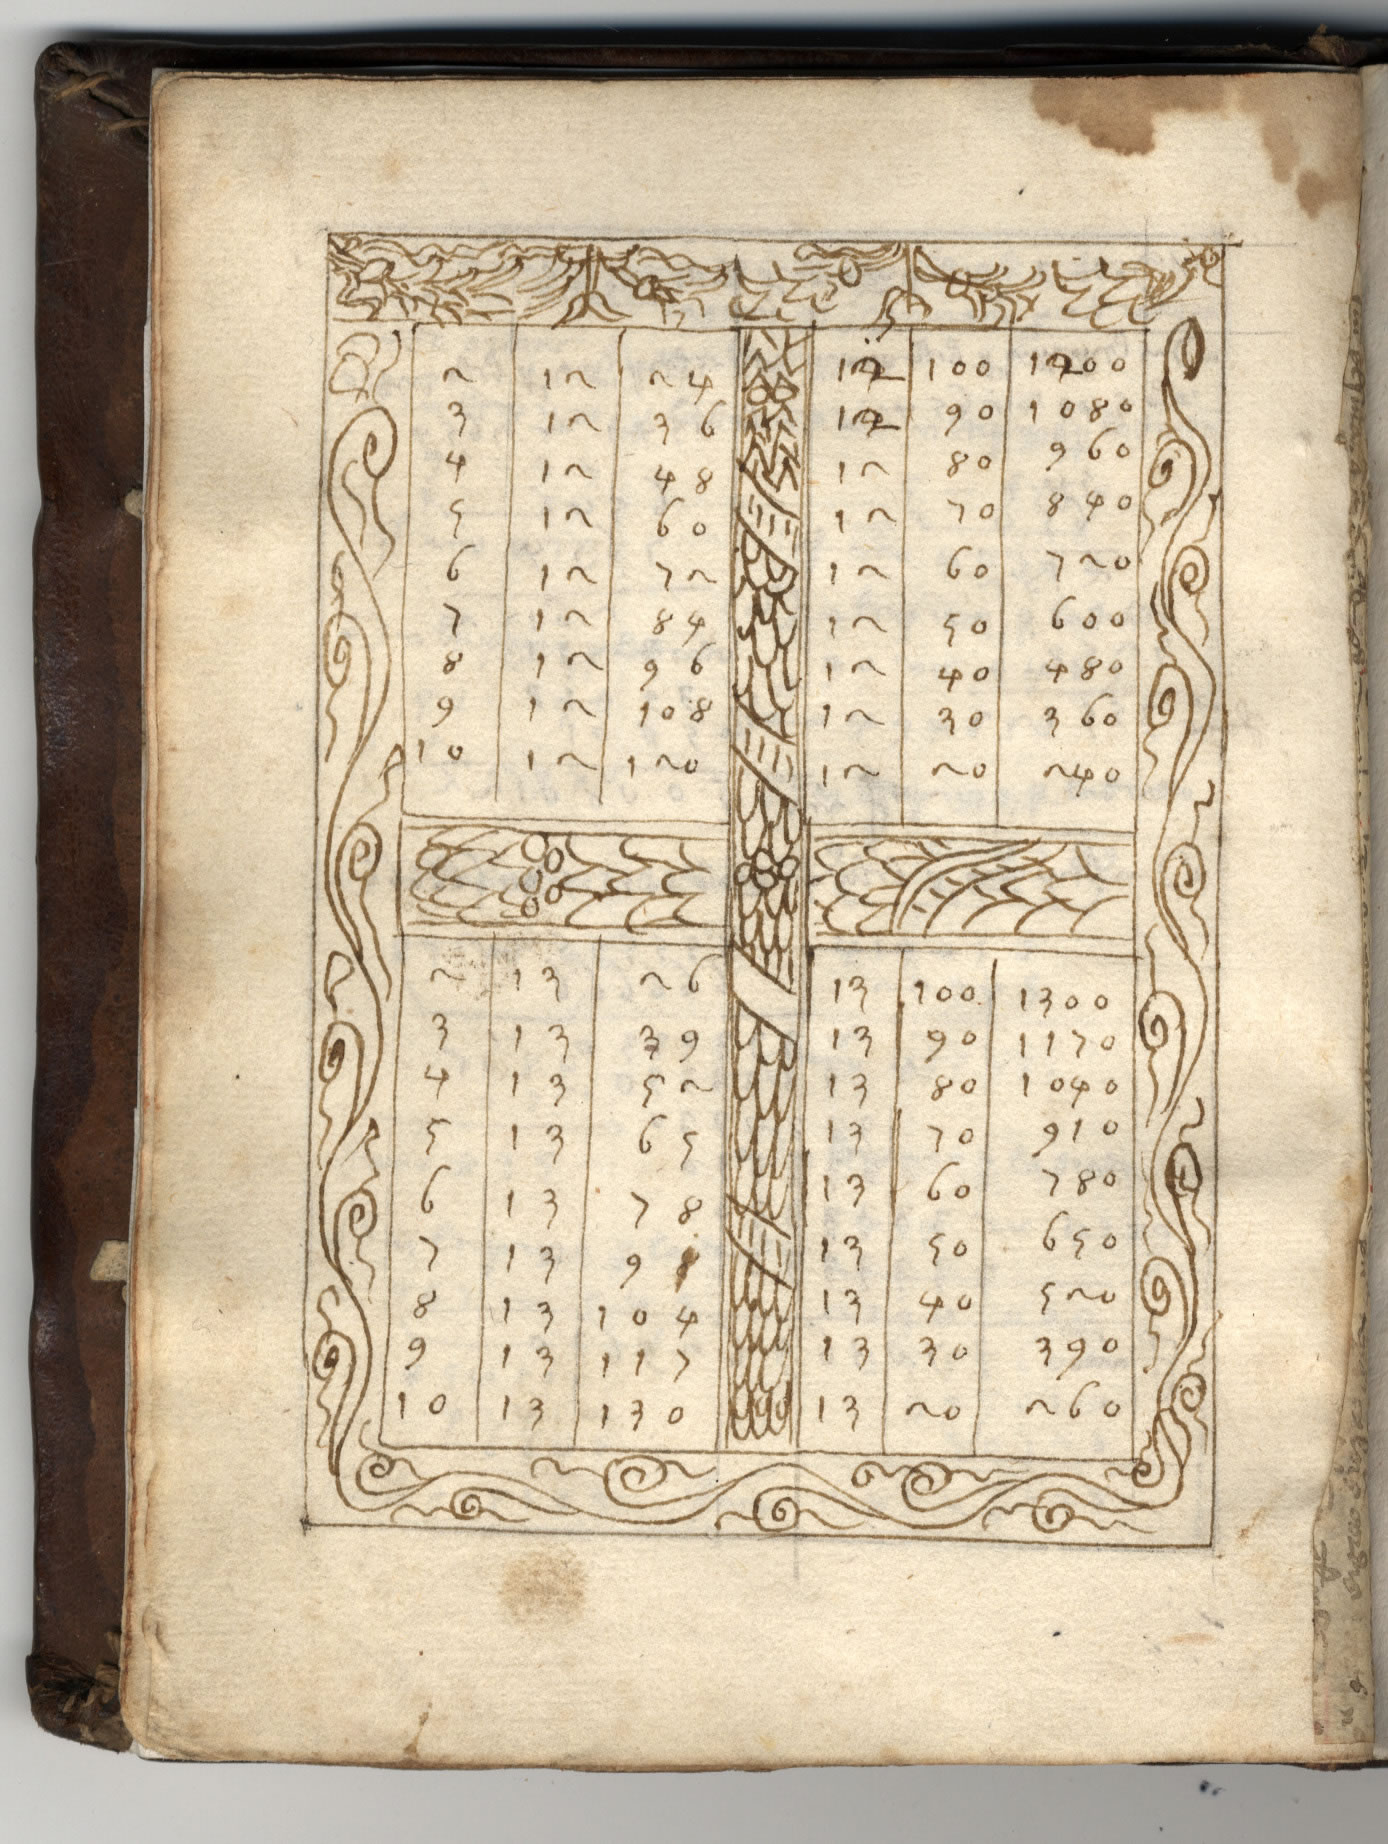 2 12 24
3 12 36
4 12 48
5 12 60
6 12 72
7 12 84
8 12 96
9 12 108
10 12 120
12 100 1200
12 90 1080
12 80 960
12 70 840
12 60 720
12 50 600
12 40 480
12 30 360
12 20 240
2 13 26
3 13 39
4 13 52
5 13 65
6 13 78
7 13 9
8 13 104
9 13 117
10 13 130
13 100 1300
13 90 1170
13 80 1040
13 70 910
13 60 780
13 50 650
13 40 520
13 30 390
13 20 260